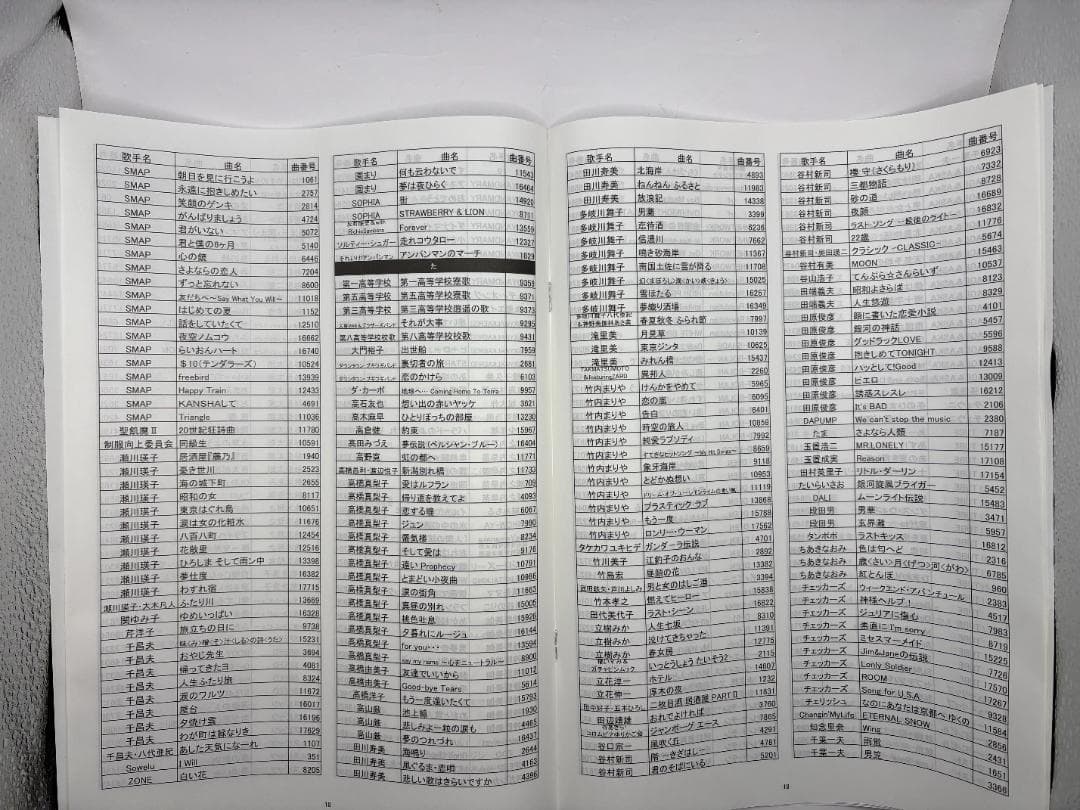 歌手名 曲名 曲番号
SMAP 朝日を見に行こうよ 1061
SMAP 永遠に抱きしめたい 2757
SMAP 笑顔のゲンキ 2814
SMAP がんばりましょう 4724
SMAP 君がいない 5072
SMAP 君と僕の6ヶ月 5140
SMAP 心の鏡 6446
SMAP さよならの恋人 7204
SMAP ずっと忘れない 8600
SMAP 友だちへ～Say What You Will～ 11018
SMAP はじめての夏 1152
SMAP 話をしていたくて 12510
SMAP 夜空ノムコウ 16662
SMAP らいおんハート 16740
SMAP $10(テンダラーズ) 10524
SMAP freebird 13939
SMAP Happy Train 12433
SMAP KANSHAして 4691
SMAP Triangle 11036
聖飢魔Ⅱ 20世紀狂詩曲 11780
制服向上委員会 同級生 10591
瀬川瑛子 居酒屋『藤乃』 1940
瀬川瑛子 憂き世川 2523
瀬川瑛子 海の城下町 2655
瀬川瑛子 昭和の女 8117
瀬川瑛子 東京はぐれ鳥 10651
瀬川瑛子 涙は女の化粧水 11676
瀬川瑛子 八百八町 12454
瀬川瑛子 花散里 12516
瀬川瑛子 ひろしま そして雨ン中 13398
瀬川瑛子 夢仕度 16382
瀬川瑛子 わすれ宿 17715
瀬川瑛子・大木凡人 ふたり川 13669
関ゆみ子 ゆめいっぱい 16328
芹洋子 旅立ちの日に 9738
千昌夫 15231
千昌夫 おやじ先生 3694
千昌夫 帰ってきたヨ 4081
千昌夫 人生ふたり旅 8324
千昌夫 涙のワルツ 11672
千昌夫 屋台 16017
千昌夫 夕焼け雲 16196
千昌夫 わが町は緑なりき 17829
千昌夫・八代亜紀 あした天気になーれ 1107
Sowelu I Will 351
ZONE 白い花 8205
18
歌手名 曲名 曲番号
園まり 何も云わないで 11543
園まり 夢は夜ひらく 16464
SOPHIA 街 14920
SOPHIA STRAWBERRY & LION 8751
Forever 13559
ソルティー・シュガー 走れコウタロー 12327
それいけ!アンパンマン アンパンマンのマーチ 1629
た
第一高等学校 第一高等学校寮歌 9359
第五高等学校 第五高等学校寮歌 9371
第三高等学校 第三高等学校逍遥の歌 9373
それが大事 9295
第八高等学校 第八高等学校校歌 9431
大門裕子 出世船 7959
裏切者の旅 2681
恋のかけら 6103
ダ・カーポ 地球へ… Coming Home To Terra 9957
高石友也 想い出の赤いヤッケ 3621
高木麻早 ひとりぼっちの部屋 13230
高倉健 約束 15967
高田みづえ 夢伝説(ペルシャン・ブルー) 16404
高野寛 虹の都へ 11771
高橋昌利・渡辺悦子 新潟別れ橋 11733
高橋真梨子 愛はルフラン 709
高橋真梨子 帰り道を教えてよ 4093
高橋真梨子 恋する瞳 6067
高橋真梨子 ジュン 7990
高橋真梨子 蜃気楼 8234
高橋真梨子 そして愛は 9176
高橋真梨子 遠い Prophecy 10791
高橋真梨子 とまどい小夜曲 10966
高橋真梨子 涙の街角 11663
高橋真梨子 真昼の別れ 15006
高橋真梨子 桃色吐息 15926
高橋真梨子 夕暮れにルージュ 16144
高橋真梨子 for you・・・ 13508
高橋真梨子 say my name ～心モニュートラル～ 8906
高橋由美子 友達でいいから 11012
高橋由美子 Good-bye Tears 5614
高橋洋子 もう一度逢いたくて 15793
高山厳 池上線 1930
高山厳 悲しみよ一粒の涙も 4465
高山厳 夢のつれづれ 16437
田川寿美 海鳴り 2644
田川寿美 風ぐるま・恋唄 4163
田川寿美 悲しい歌はきらいですか 4386
歌手名 曲名 曲番号
田川寿美 北海岸 4893
田川寿美 ねんねん ふるさと 11983
田川寿美 放浪記 14338
多岐川舞子 男灘 3399
多岐川舞子 恋待酒 6236
多岐川舞子 信濃川 7662
多岐川舞子 鳴き砂海岸 11567
多岐川舞子 南国土佐に雪が降る 11708
多岐川舞子 15025
多岐川舞子 雪ほたる 16257
多岐川舞子 夢織り酒場 16349
春夏秋冬 ふられ節 7997
滝里美 月見草 10139
滝里美 東京ジンタ 10625
滝里美 みれん橋 15437
異邦人 2260
竹内まりや けんかをやめて 5965
竹内まりや 恋の嵐 6095
竹内まりや 告白 6401
竹内まりや 時空の旅人 10859
竹内まりや 純愛ラプソディ 7992
竹内まりや 8659
竹内まりや 象牙海岸 9118
竹内まりや とどかぬ想い 10953
竹内まりや 11119
竹内まりや プラスティック・ラブ 13868
竹内まりや もう一度 15788
竹内まりや ロンリー・ウーマン 17562
タケカワユキヒデ ガンダーラ伝説 4701
竹川美子 江釣子のおんな 2892
竹島宏 昼顔の花 13382
男と女のはしご酒 3394
竹本孝之 燃えてヒーロー 15838
田代美代子 ラスト・シーン 16822
立樹みか 人生七坂 8310
立樹みか 泣けてきちゃった 11391
立樹みか 春女房 2115
いっとうしょう たいそう2 14607
立花淳一 ホテル 1232
立花伸一 厚木の夜 11631
二枚目酒 居酒屋 PARTⅡ 3760
田辺靖雄 おれでよければ 7805
ジャンボーグ エース 4291
谷口宗一 風吹く丘 4761
谷村新司 階 ～きざはし～ 5201
谷村新司 君のそばにいる
歌手名 曲名 曲番号
谷村新司 喫 守(さくらもり) 6923
谷村新司 三都物語 7332
谷村新司 砂の道 8728
谷村新司 夜顔 16689
谷村新司 ラストソング ～最後のライト～ 16832
谷村新司 22歳 11776
クラシック -CLASSIC- 5674
谷村有美 MOON 15463
谷山浩子 てんぷら☆さんらいず 10537
田端義夫 昭和よさらば 8123
田端義夫 人生悠遊 8329
田原俊彦 顔に書いた恋愛小説 4101
田原俊彦 銀河の神話 5457
田原俊彦 グッドラックLOVE 5596
田原俊彦 抱きしめてTONIGHT 9588
田原俊彦 ハッとして!Good 12413
田原俊彦 ピエロ 13009
田原俊彦 誘惑スレスレ 16212
田原俊彦 It's BAD 2106
DAPUMP We can't stop the music 2380
たま さよなら人類 7187
玉置浩二 MR.LONELY 15177
玉置成実 Reason 17108
田村英里子 リトル・ダーリン 17154
たいらいさお 銀河旋風ブライガー 5452
DALI ムーンライト伝説 15483
段田男 男華 3471
段田男 玄界灘 5957
タンポポ ラストキッス 16812
ちあきなおみ 色は匂へど 2316
ちあきなおみ 歳<さい>月<げつ>河<がわ> 6785
ちあきなおみ 紅とんぼ 960
チェッカーズ ウィークエンド・アバンチュール 2383
チェッカーズ 神様ヘルプ! 4517
チェッカーズ ジュリアに傷心 7983
チェッカーズ 素直にI'm sorry 8719
チェッカーズ ミセスマーメイド 15225
チェッカーズ Jim&Janeの伝説 7726
チェッカーズ Lonly Soldier 17570
チェッカーズ ROOM 17267
チェッカーズ Song for U.S.A. 9328
チェリッシュ なのにあなたは京都へゆくの 11594
Changin'MyLife ETERNAL SNOW 2856
知念里奈 Wing 2431
千葉一夫 雨撤 1651
千葉一夫 男荒 3366
19